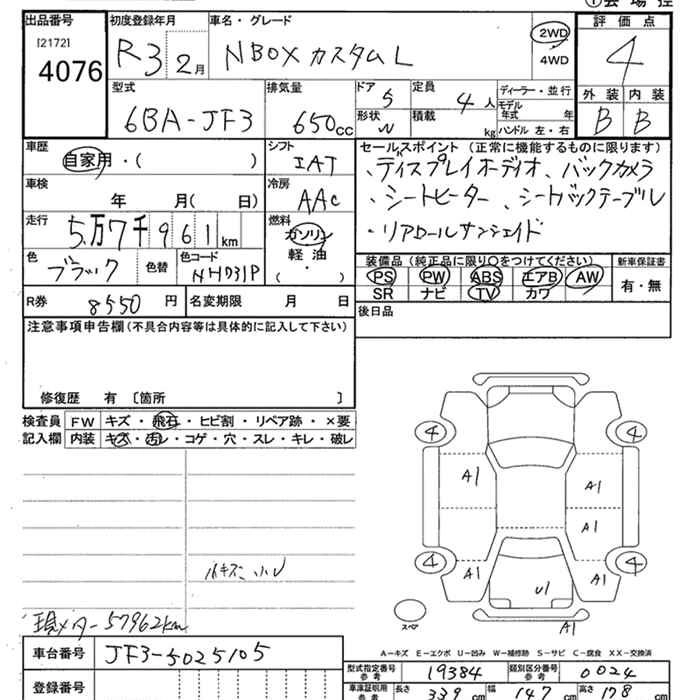 ①会場控
出品番号 初度登録年月 車名・グレード 評価点
[2172]
4076
R3 2月 NBOX カスタム L 2WD 4WD 4
型式 排気量 ドア 定員 ディーラー・並行 外装 内装
6BA-JF3 650cc 5 4人 モデル年式 年 B B
形状 積載 kg ハンドル 左・右
車歴 シフト セールスポイント (正常に機能するものに限ります)
自家用・( ) IAT ・ディスプレイオーディオ、バックカメラ
車検 冷房 ・シートヒーター、シートバックテーブル
年 月( 日) AAC ・リアロールサンシェイド
走行 燃料
5万7千961km ガソリン
軽油
・
( )
色 色替 色コード 装備品 (純正品に限り○をつけてください) 新車保証書
ブラック NH731P PS PW ABS エアB AW 有・無
SR ナビ TV カワ
R券 8550円 名変期限 月 日 後日品
注意事項申告欄(不具合内容等は具体的に記入して下さい)
修復歴 有 [箇所 ]
検査員 FW キズ・飛石・ヒビ割・リペア跡・×要
記入欄 内装 キズ・汚レ・コゲ・穴・スレ・キレ・破レ
4 4
A1 A1
A1
4 4
A1 A1
U1
スペア A1
小キズ 小U
現メーター57962km
A-キズ E-エクボ U-凹み W-補修跡 S-サビ C-腐食 XX-交換済
車台番号 JF3-5025105
型式指定番号参考 19384 類別区分番号参考 0024
登録番号
車庫証明用参考 長さ 339cm 幅 147cm 高さ 178cm